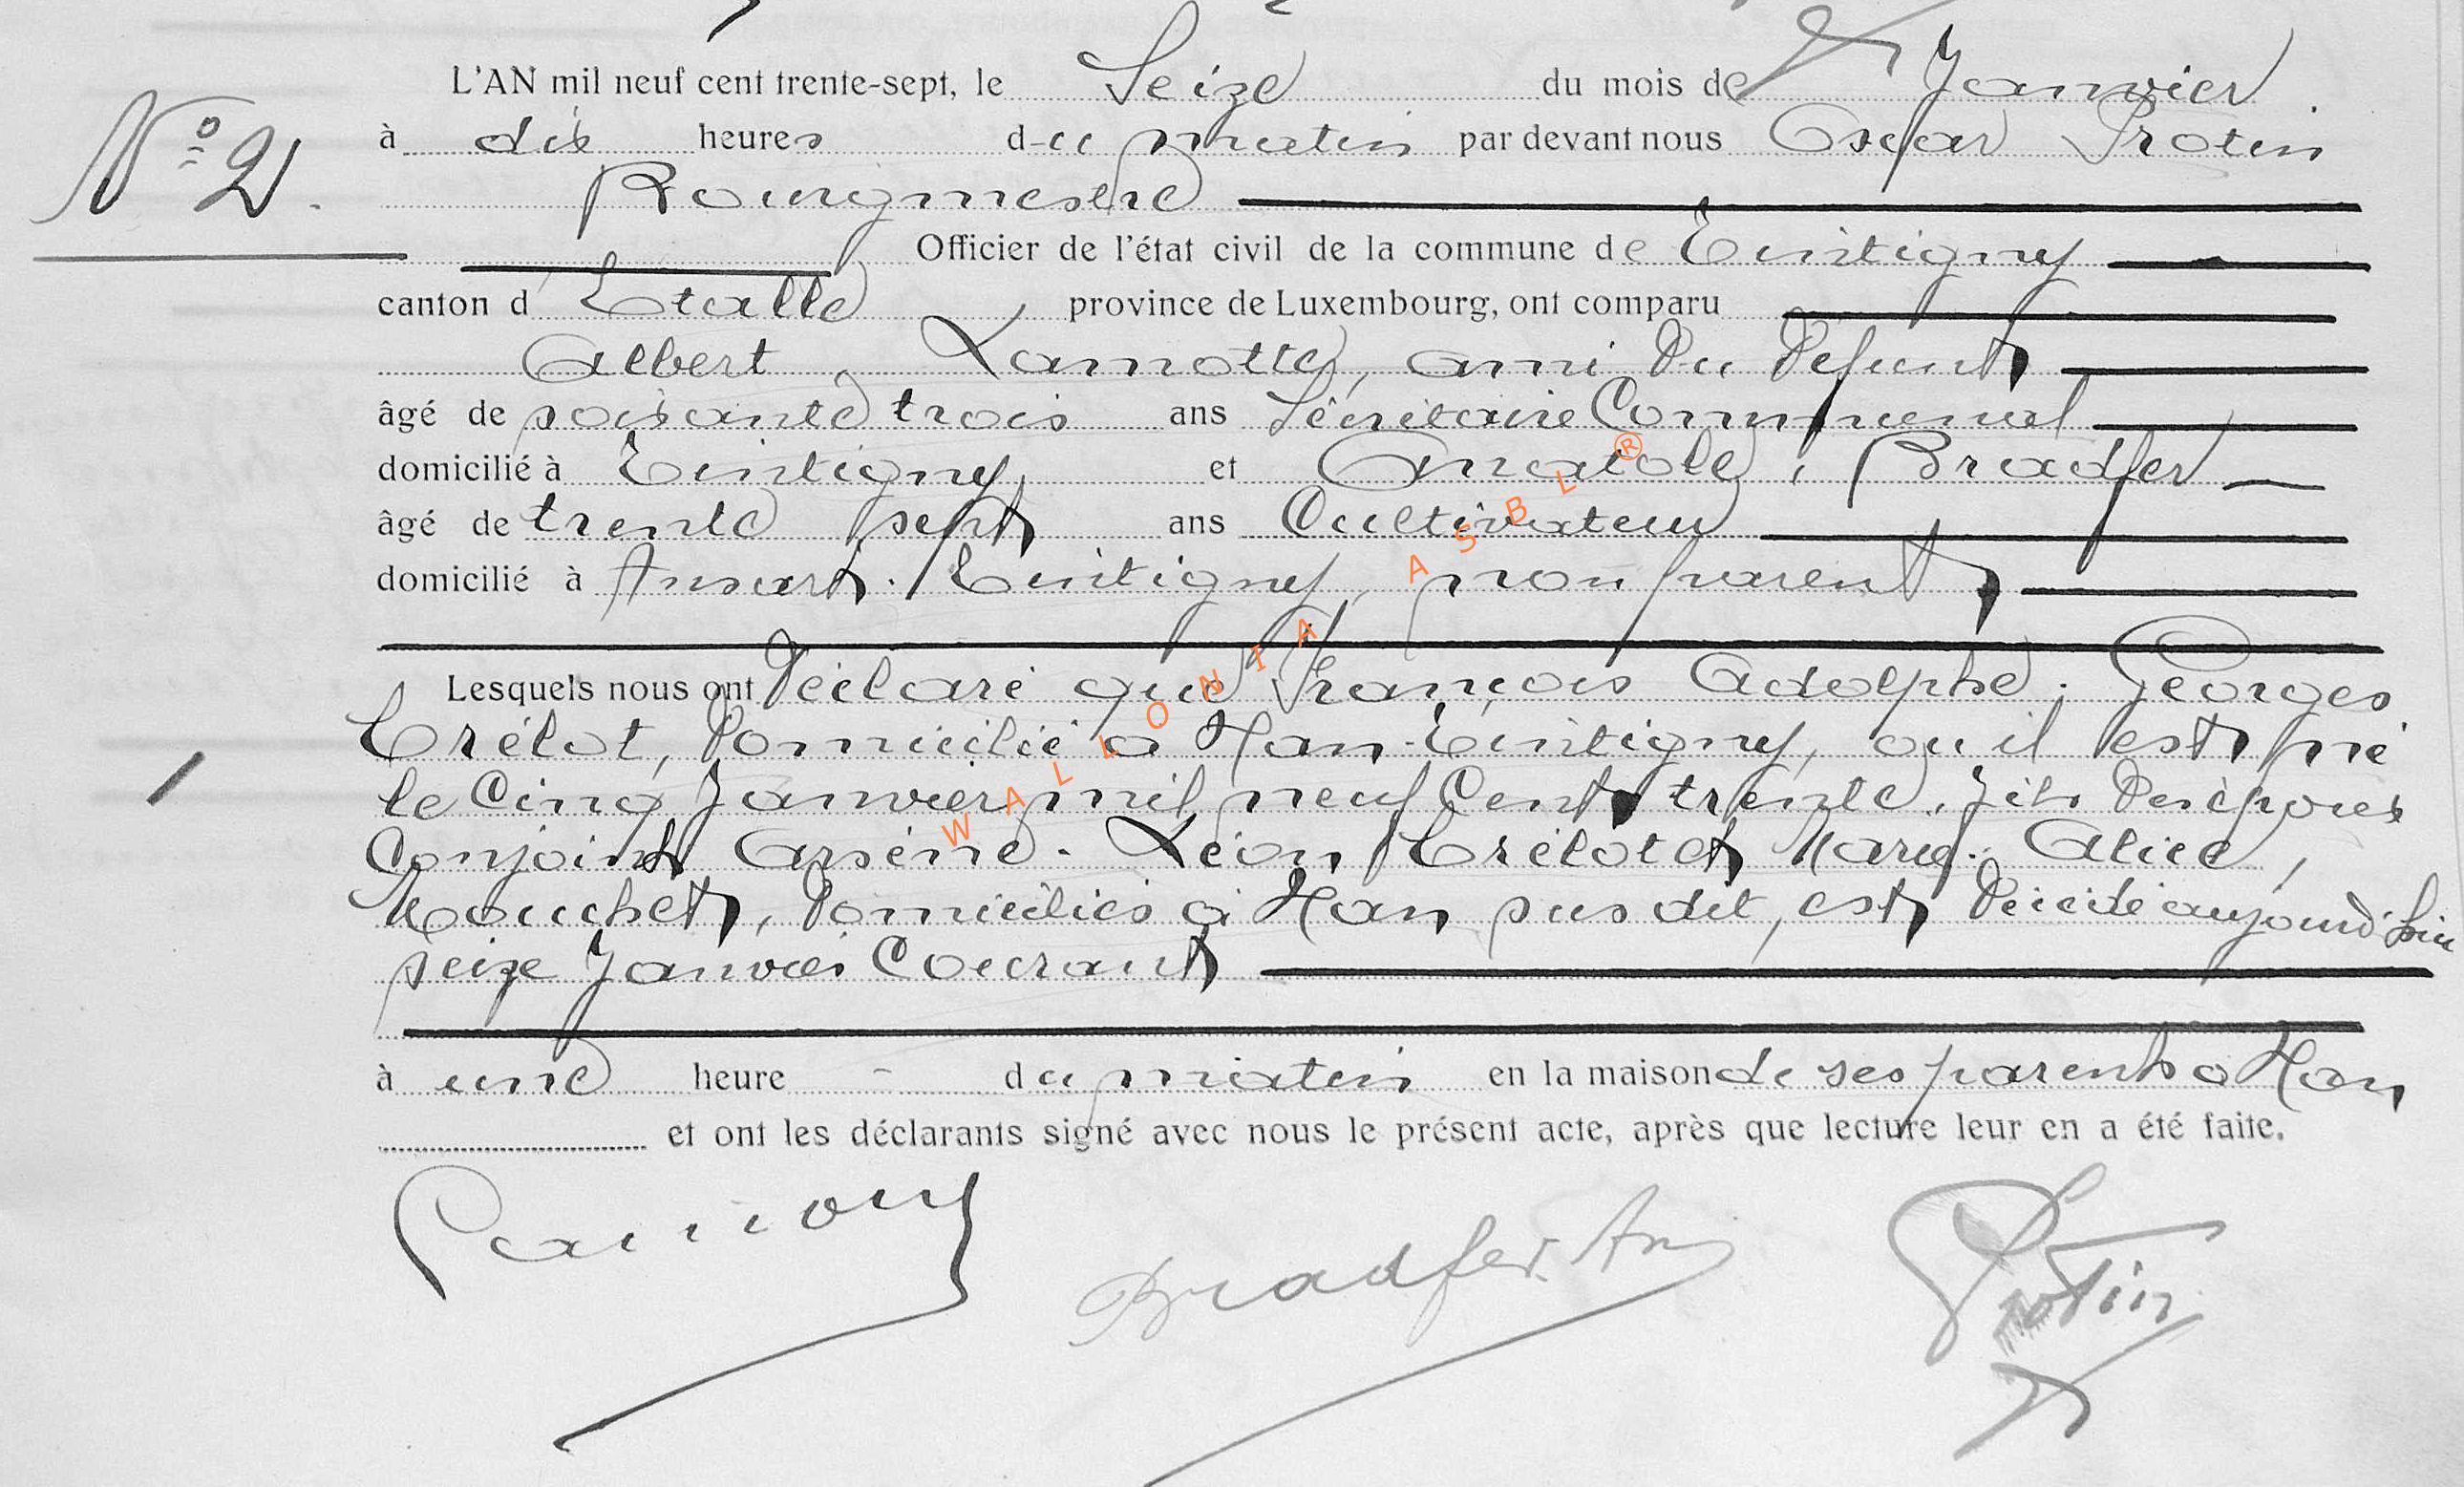 L'AN mil neuf cent trente-sept, le Seize du mois de Janvier
N° 2.
à dix heures du matin par devant nous Oscar Protin
Bourgmestre
Officier de l'état civil de la commune de Tintigny
canton d'Etalle province de Luxembourg, ont comparu
Albert, Lamotte, ami du défunt
âgé de soixante trois ans Secrétaire Communal
domicilié à Tintigny et Anatole, Bradfer
âgé de trente sept ans Cultivateur
domicilié à Ansart-Tintigny, non parent
Lesquels nous ont déclaré que François Adolphe. Georges
Trélot, domicilié à Han-Tintigny, ou il est né
le cinq Janvier mil neuf cent trente, fils des époux
Conjoints Arsène-Léon Trélot et Marie-Alice,
domiciliés à Han susdit, est décédé aujourd'hui
seize Janvier Courant
à une heure - du matin en la maison de ses parents à Han
et ont les déclarants signé avec nous le présent acte, après que lecture leur en a été faite.
Bradfer. An
Protin
WALLONIA ASBL ®